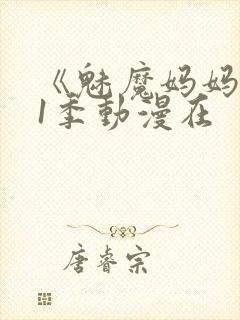 《魅魔妈妈
1季动漫在
唐睿宗